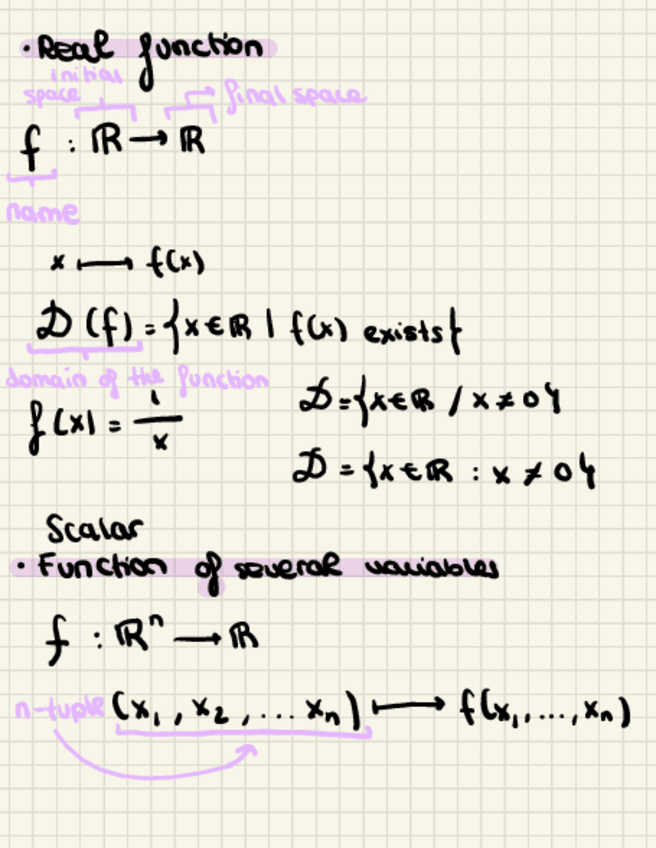 · Real function
initial
space
final space
f : ℝ → ℝ
name
x ⟼ f(x)
𝒟 (f) = {x ∈ ℝ | f(x) exists}
domain of the function
f(x) = 1/x
𝒟 = {x ∈ ℝ / x ≠ 0}
𝒟 = {x ∈ ℝ : x ≠ 0}
Scalar
· Function of several variables
f : ℝⁿ → ℝ
n-tuple (x₁, x₂, ... xₙ) ⟼ f(x₁, ..., xₙ)